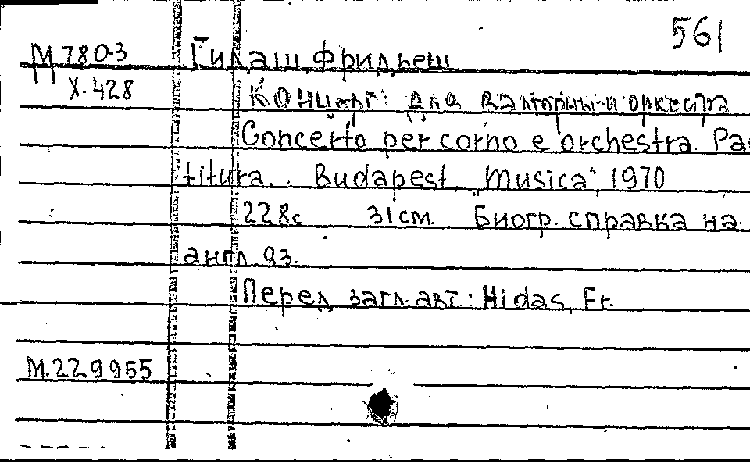 561
М 780-3 Гидаш, Фридьеш
Х-428 Концерт: для валторны и оркестра
Concerto per corno e orchestra. Par
titura. Budapest, "Musica", 1970
228с 31см. Биогр. справка на
англ. яз.
Перед загл. авт.: Hidas, Fr.
М.229955